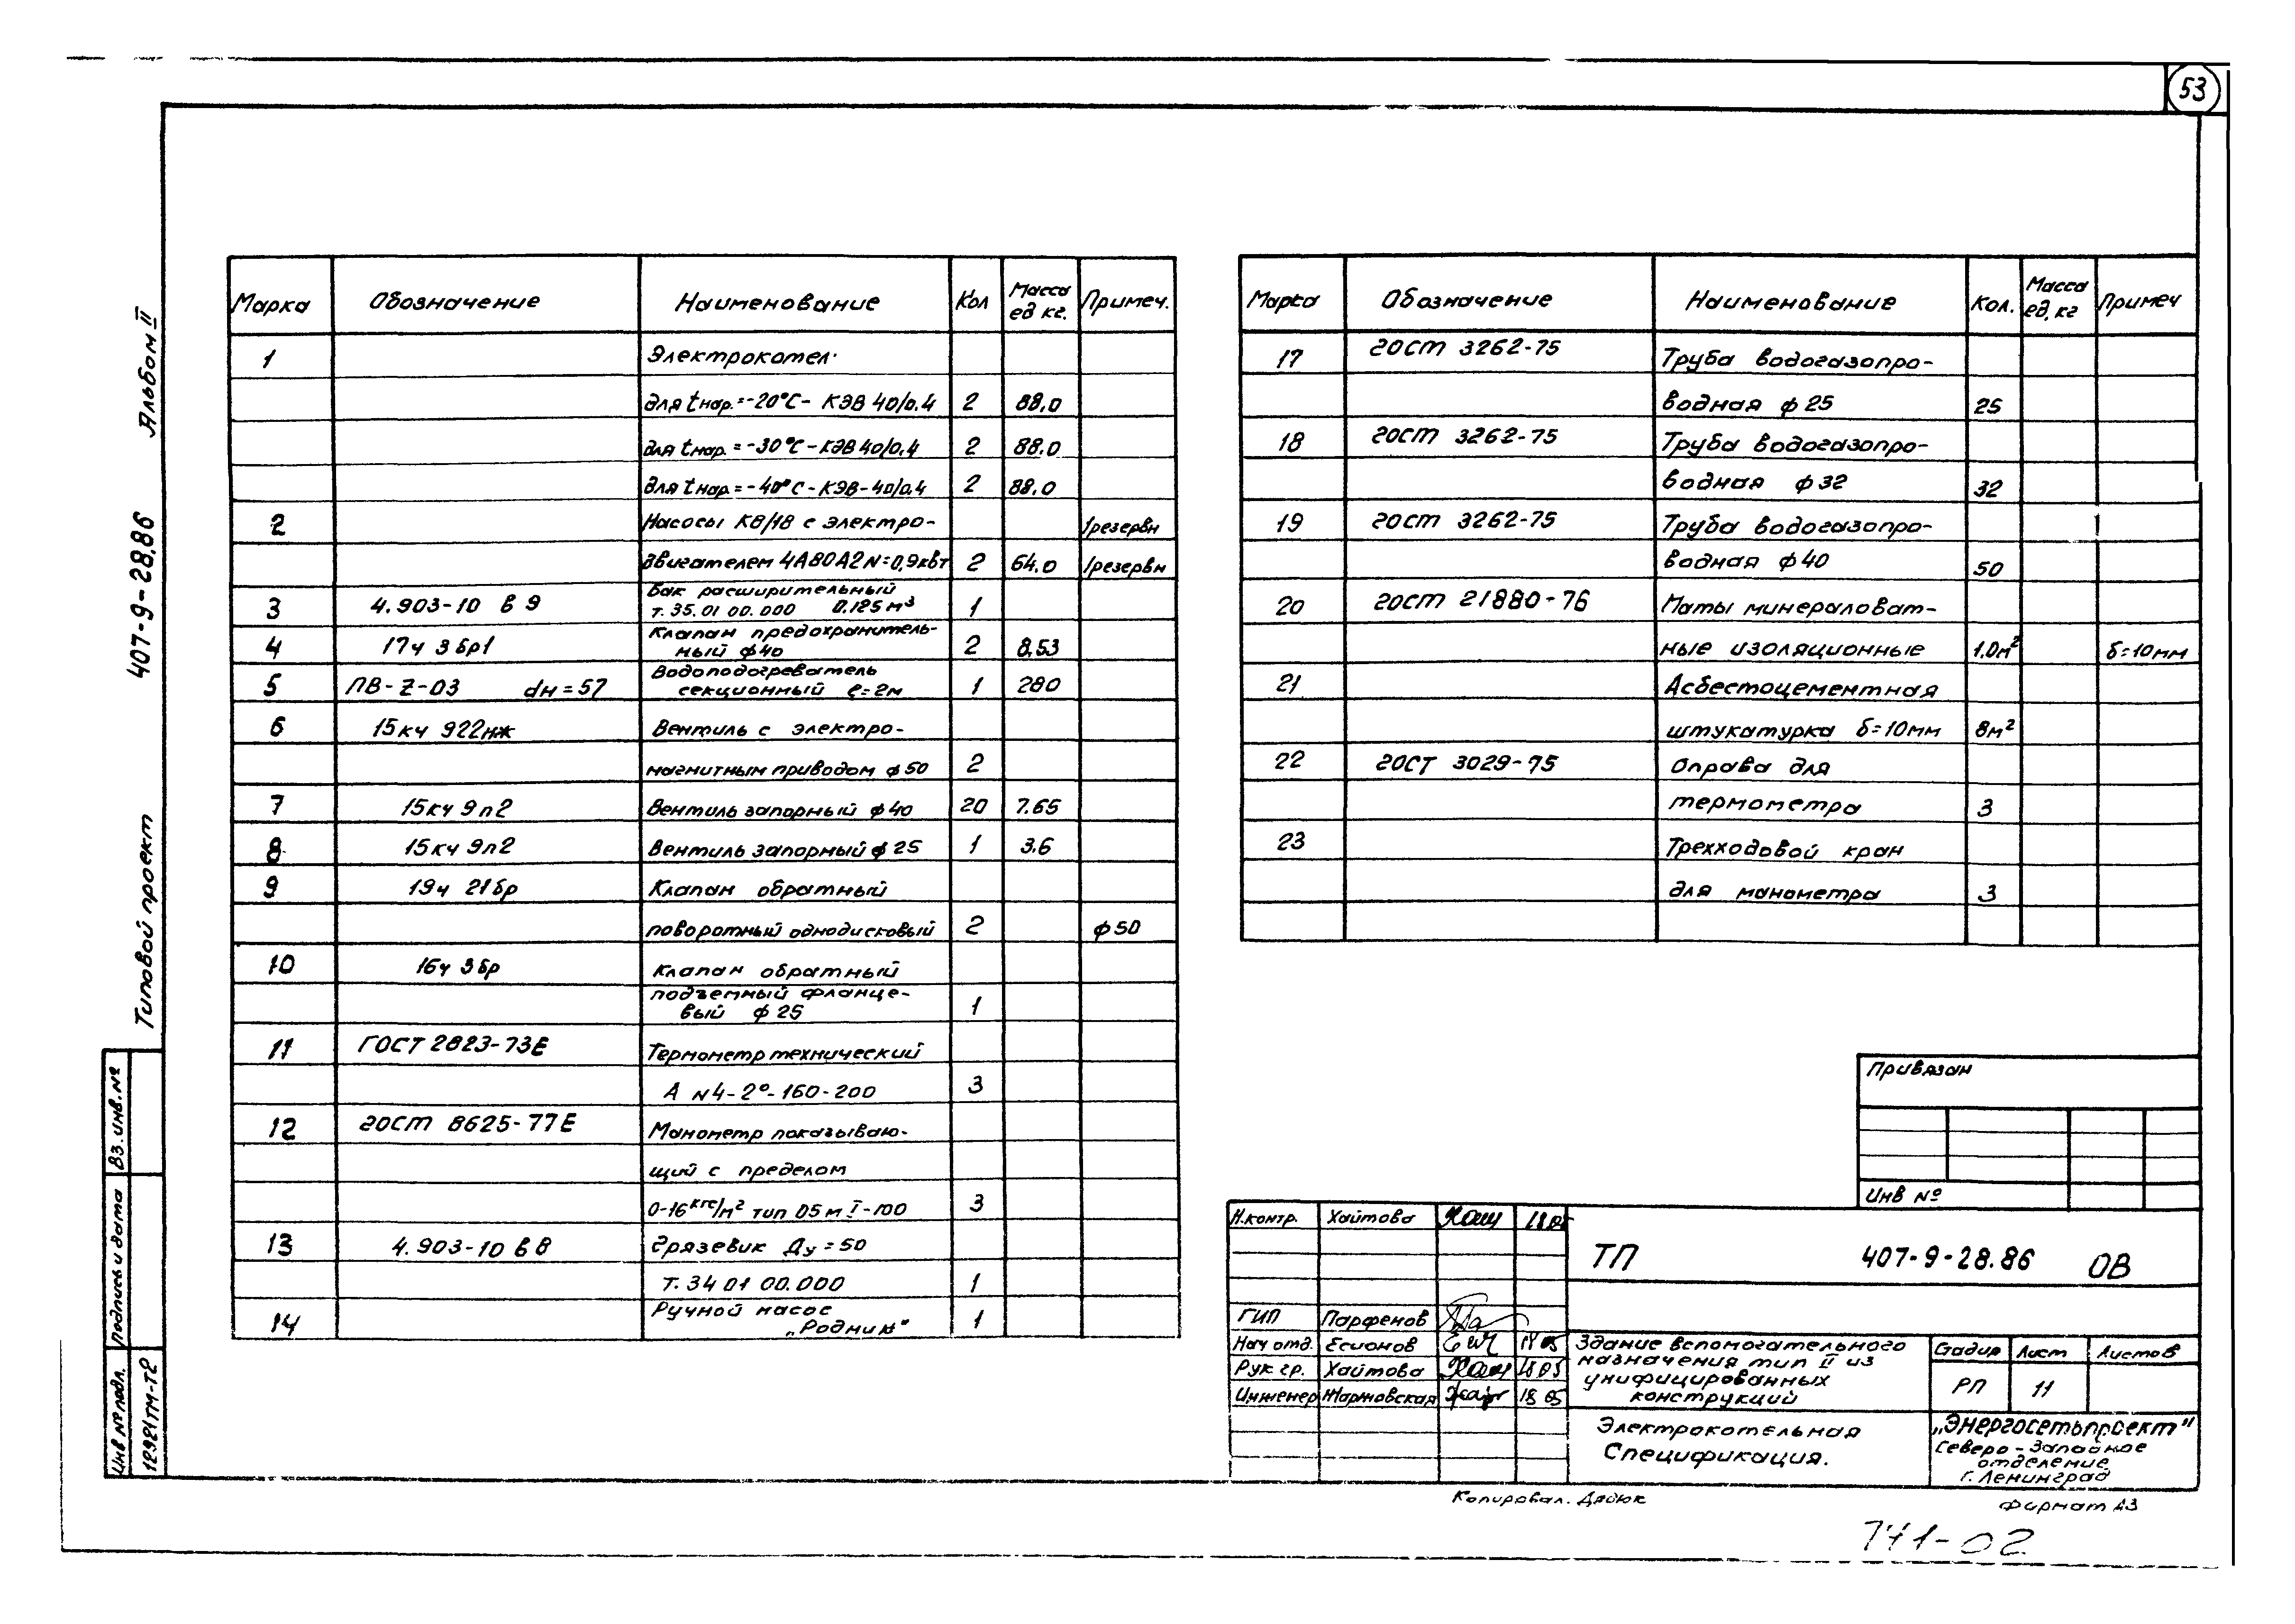 53
Альбом II
407-9-28.86
Типовой проект
Марка Обозначение Наименование Кол Масса ед кг. Примеч.
1 Электрокотел
для tнар.=-20°С- КЭВ 40/0.4 2 88,0
для tнар.=-30°С-КЭВ 40/0,4 2 88.0
для tнар.=-40°С-КЭВ-40/0.4 2 88.0
2 Насосы К8/18 с электро- 1резервн
двигателем 4А80А2 N=0,9квт 2 64.0 1резервн
3 4.903-10 в 9 Бак расширительный
т.35.01 00.000 0.125 м³ 1
4 17ч 3бр1 Клапан предохранитель-
ный ф40 2 8,53
5 ПВ-Z-03 dн=57 Водоподогреватель
секционный ℓ=2м 1 280
6 15кч 922нж Вентиль с электро-
магнитным приводом ф50 2
7 15кч 9п2 Вентиль запорный ф40 20 7.65
8 15кч 9п2 Вентиль запорный ф25 1 3.6
9 19ч 21бр Клапан обратный
поворотный однодисковый 2 ф50
10 16ч 3бр Клапан обратный
подъемный фланце-
вый ф25 1
11 ГОСТ 2823-73Е Термометр технический
А N4-2°-160-200 3
12 ГОСТ 8625-77Е Манометр показываю-
щий с пределом
0-16кгс/м² тип 05м I-100 3
13 4.903-10 в 8 Грязевик Ду=50
Т.34 01 00.000 1
14 Ручной насос
„Родник" 1
Марка Обозначение Наименование Кол. Масса ед.кг Примеч
17 ГОСТ 3262-75 Труба водогазопро-
водная ф25 25
18 ГОСТ 3262-75 Труба водогазопро-
водная ф32 32
19 ГОСТ 3262-75 Труба водогазопро-
водная ф40 50
20 ГОСТ 21880-76 Маты минераловат-
ные изоляционные 1.0м² δ=10мм
21 Асбестоцементная
штукатурка δ=10мм 8м²
22 ГОСТ 3029-75 Оправа для
термометра 3
23 Трехходовой кран
для манометра 3
Привязан
Инв №
Н.контр. Хайтова 18.05
ТП 407-9-28.86 ОВ
ГИП Парфенов
Нач отд. Есионов 18 05
Рук гр. Хайтова 18 05
Инженер Жарновская 18 05
Здание вспомогательного
назначения тип II из
унифицированных
конструкций
Стадия Лист Листов
РП 11
Электрокотельная
Спецификация.
„Энергосетьпроект"
Северо-Западное
отделение
г. Ленинград
Копировал. Дядюк
Формат А3
741-02
Вз.инв.№
Подпись и дата
Инв № подл.
12321ТМ-Т2